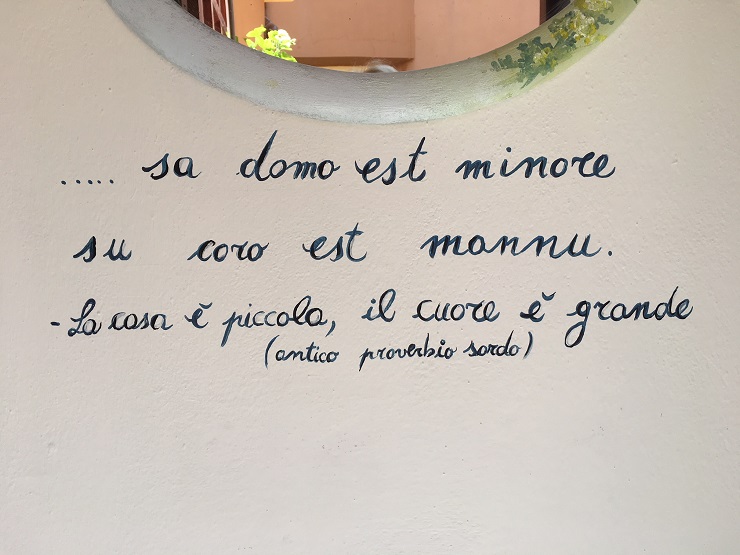 ..... sa domo est minore
su coro est mannu.
- La casa è piccola, il cuore è grande
(antico proverbio sardo)